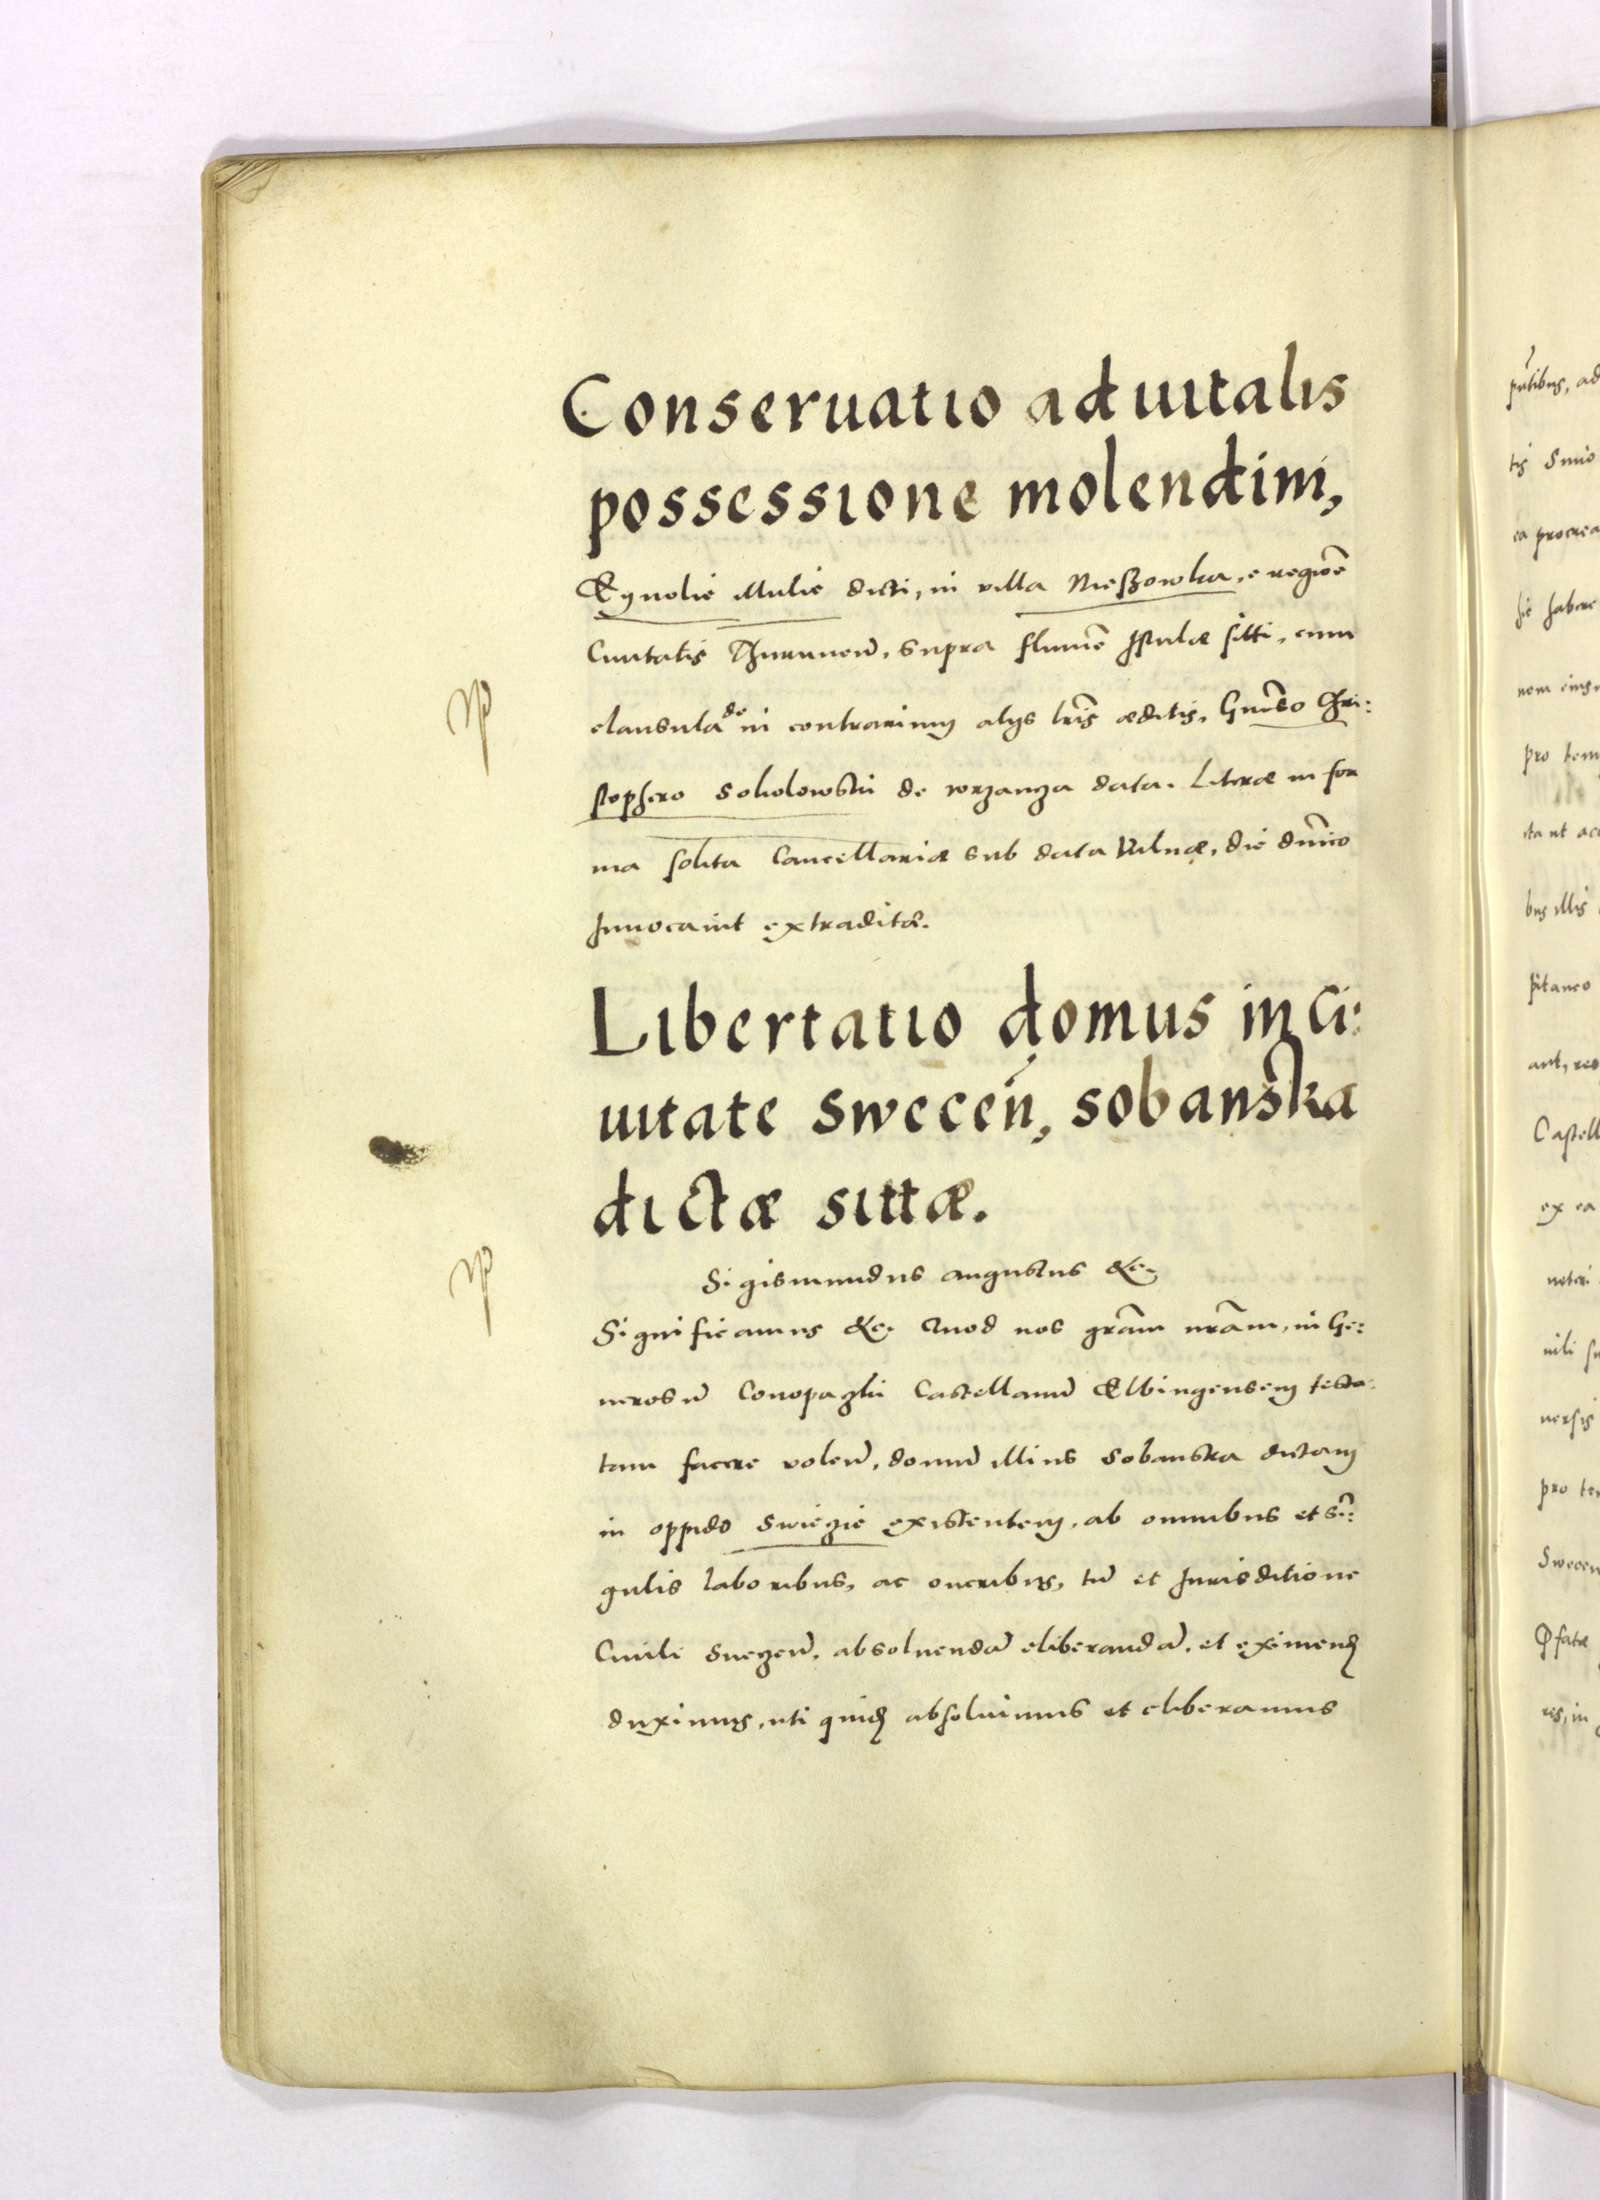 Conseruatio aduitalis
possessione molendini,
Kynolie Mulie dicti, in villa Nieszowka, e regiōe
Ciuitatis Thurunēn̄, supra flumē Istulæ sitti, cum
clausula de in contrarium alys lr̄is æditis, Gn̄oso Chri:
stophero Sokolowski de wrzanza data. Literæ in for
ma solita Cancellariæ sub data Vilnæ, die dn̄ico
Inuocauit extraditæ.
Libertatio domus in Ci:
uitate Swecen̄, sobanska
dictæ sittæ.
Sigismundus augustus &c.
Significamus &c. Quod nos grām nrām, in Ge:
nerosū Conopazki Castellanū Elbingensem testa:
tam facere volen̄, domū illius Sobanska dictam
in oppido Swiezie existentem, ab omnibus et sī:
gulis laboribus, ac oneribus, tū et Jurisditione
Ciuili Suezen̄, absoluendā eliberandā, et eximend
duximus, uti quid absoluimus et eliberamus
pn̄tibus, ad
tis Suio
ea procrea
hic habere
nom eius
pro tem
ita ut acc
bus illis
pitaneo
aut, res
Castell
ex ea
uili su
uersis
pro te
Swecen
Pfatæ
res, in